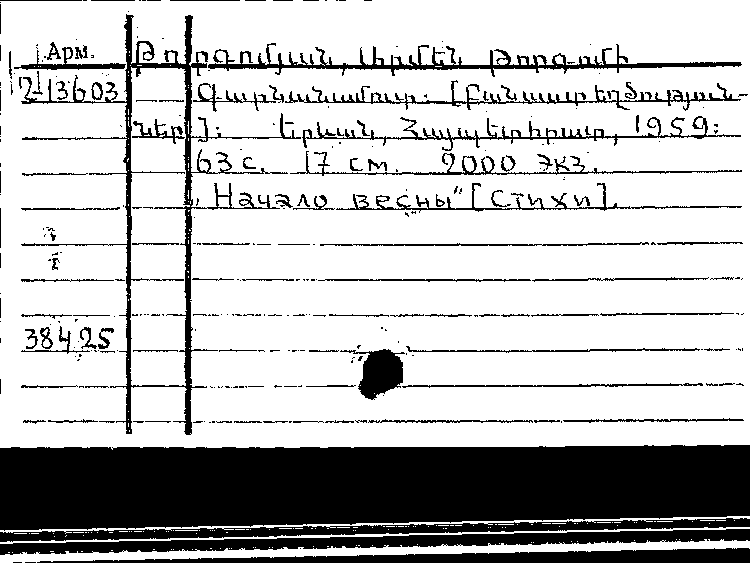 Арм. Թորգոմյան, Արմեն Թորգոմի
2-13603 Գարնանամուտ: [Բանաստեղծություն-
ներ]: Երևան, Հայպետհրատ, 1959:
63 с. 17 см. 2000 экз.
„Начало весны" [Стихи].
38425